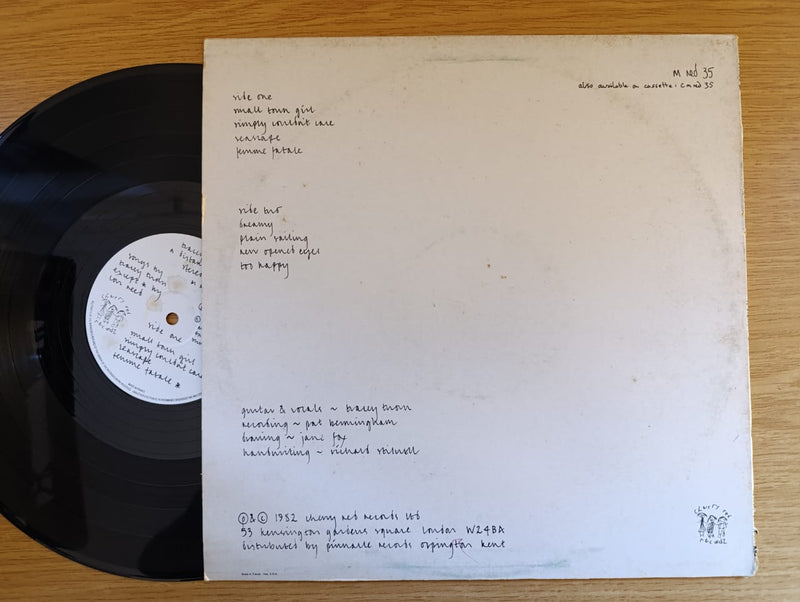 m red 35
also available on cassette: c m red 35
side one
small town girl
simply couldn't care
seascape
femme fatale
side two
dreamy
plain sailing
new opened eyes
too happy
guitar & vocals ~ tracey thorn
recording ~ pat bermingham
drawing ~ jane fox
handwriting ~ richard
p & c 1982 cherry red records ltd
53 kensington gardens square london W24BA
distributed by pinnacle records orpington kent
cherry red
records
tracey
a dista
stereo
songs by
tracey thorn
except * by
lou reed
cherry red
records
side one
small town girl
simply couldn't care
seascape
femme fatale *